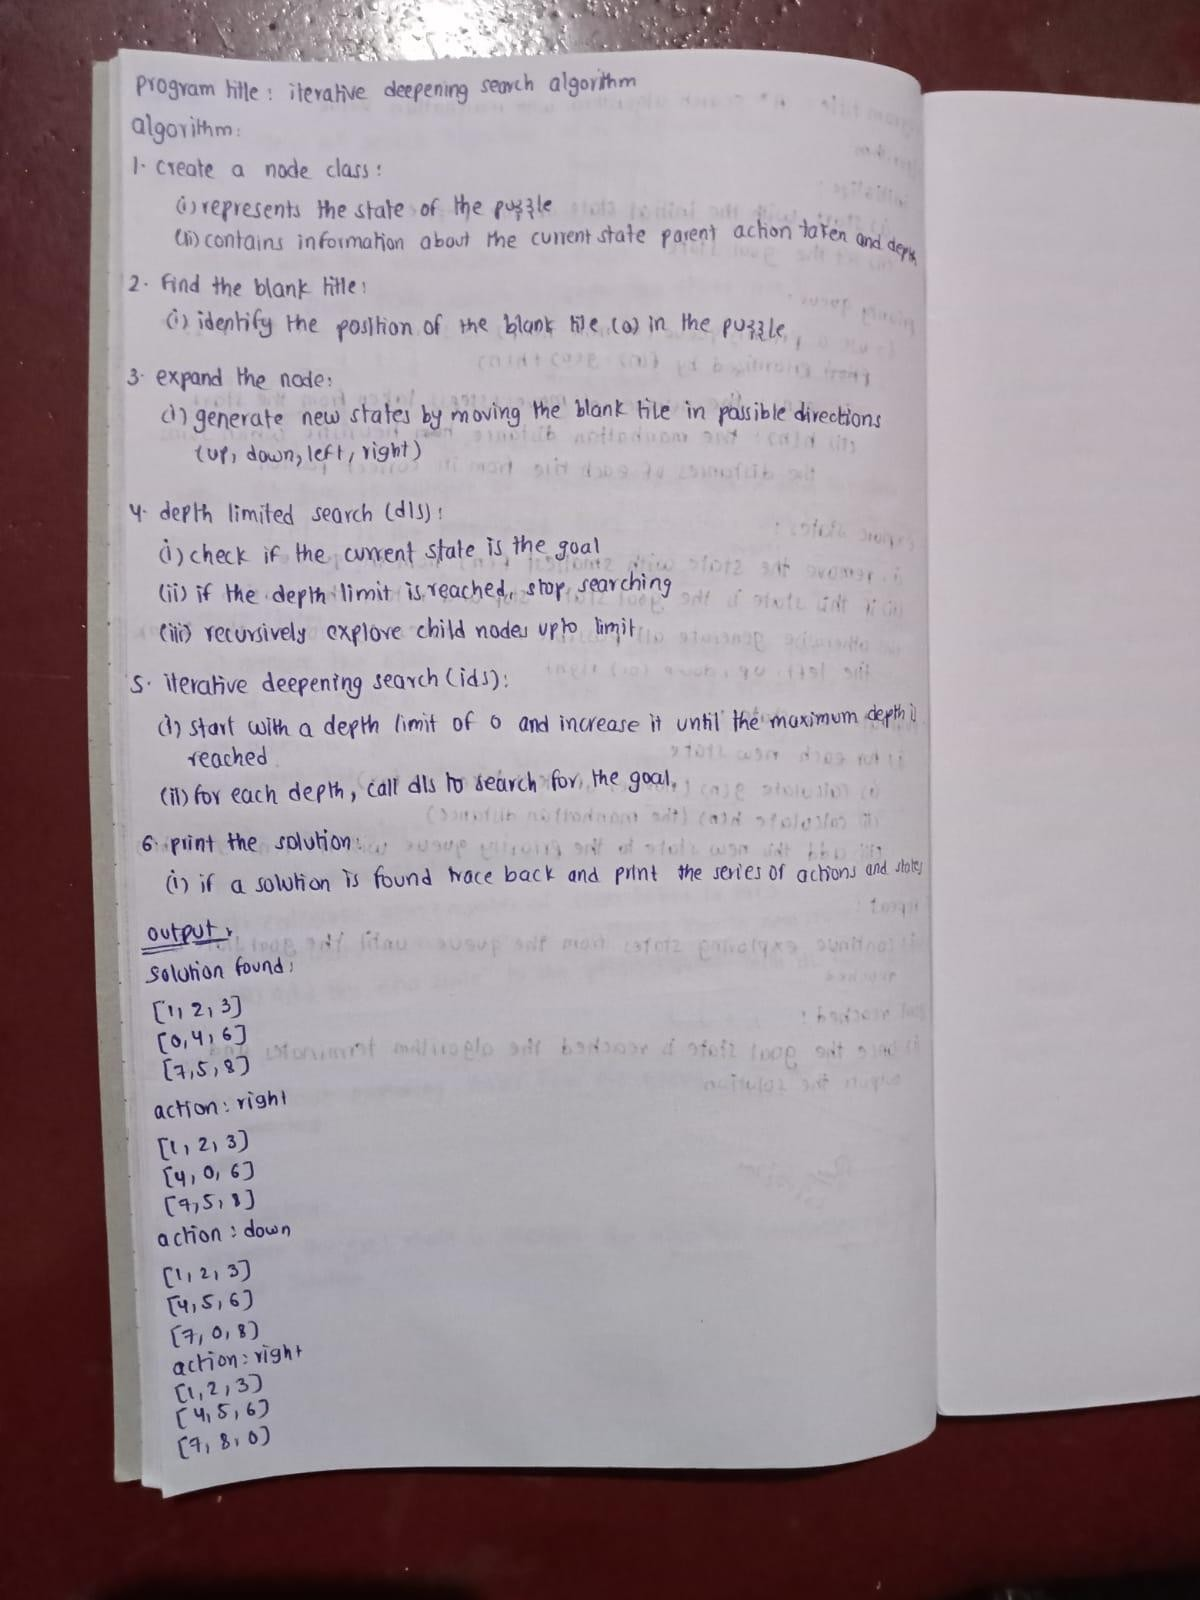 program title : iterative deepening search algorithm
algorithm:
1. create a node class :
(i) represents the state of the puzzle
(ii) contains information about the current state parent action taken and depth
2. find the blank title :
(i) identify the position of the blank tile (0) in the puzzle
3. expand the node:
(i) generate new states by moving the blank tile in possible directions
(up, down, left, right)
4. depth limited search (dls) :
(i) check if the current state is the goal
(ii) if the depth limit is reached, stop searching
(iii) recursively explore child nodes upto limit
5. iterative deepening search (ids):
(i) start with a depth limit of 0 and increase it until the maximum depth is
reached
(ii) for each depth, call dls to search for the goal.
6. print the solution:
(i) if a solution is found trace back and print the series of actions and states
output :
solution found :
[1, 2, 3]
[0, 4, 6]
[7, 5, 8]
action : right
[1, 2, 3]
[4, 0, 6]
[7, 5, 8]
action : down
[1, 2, 3]
[4, 5, 6]
[7, 0, 8]
action : right
[1, 2, 3]
[4, 5, 6]
[7, 8, 0]